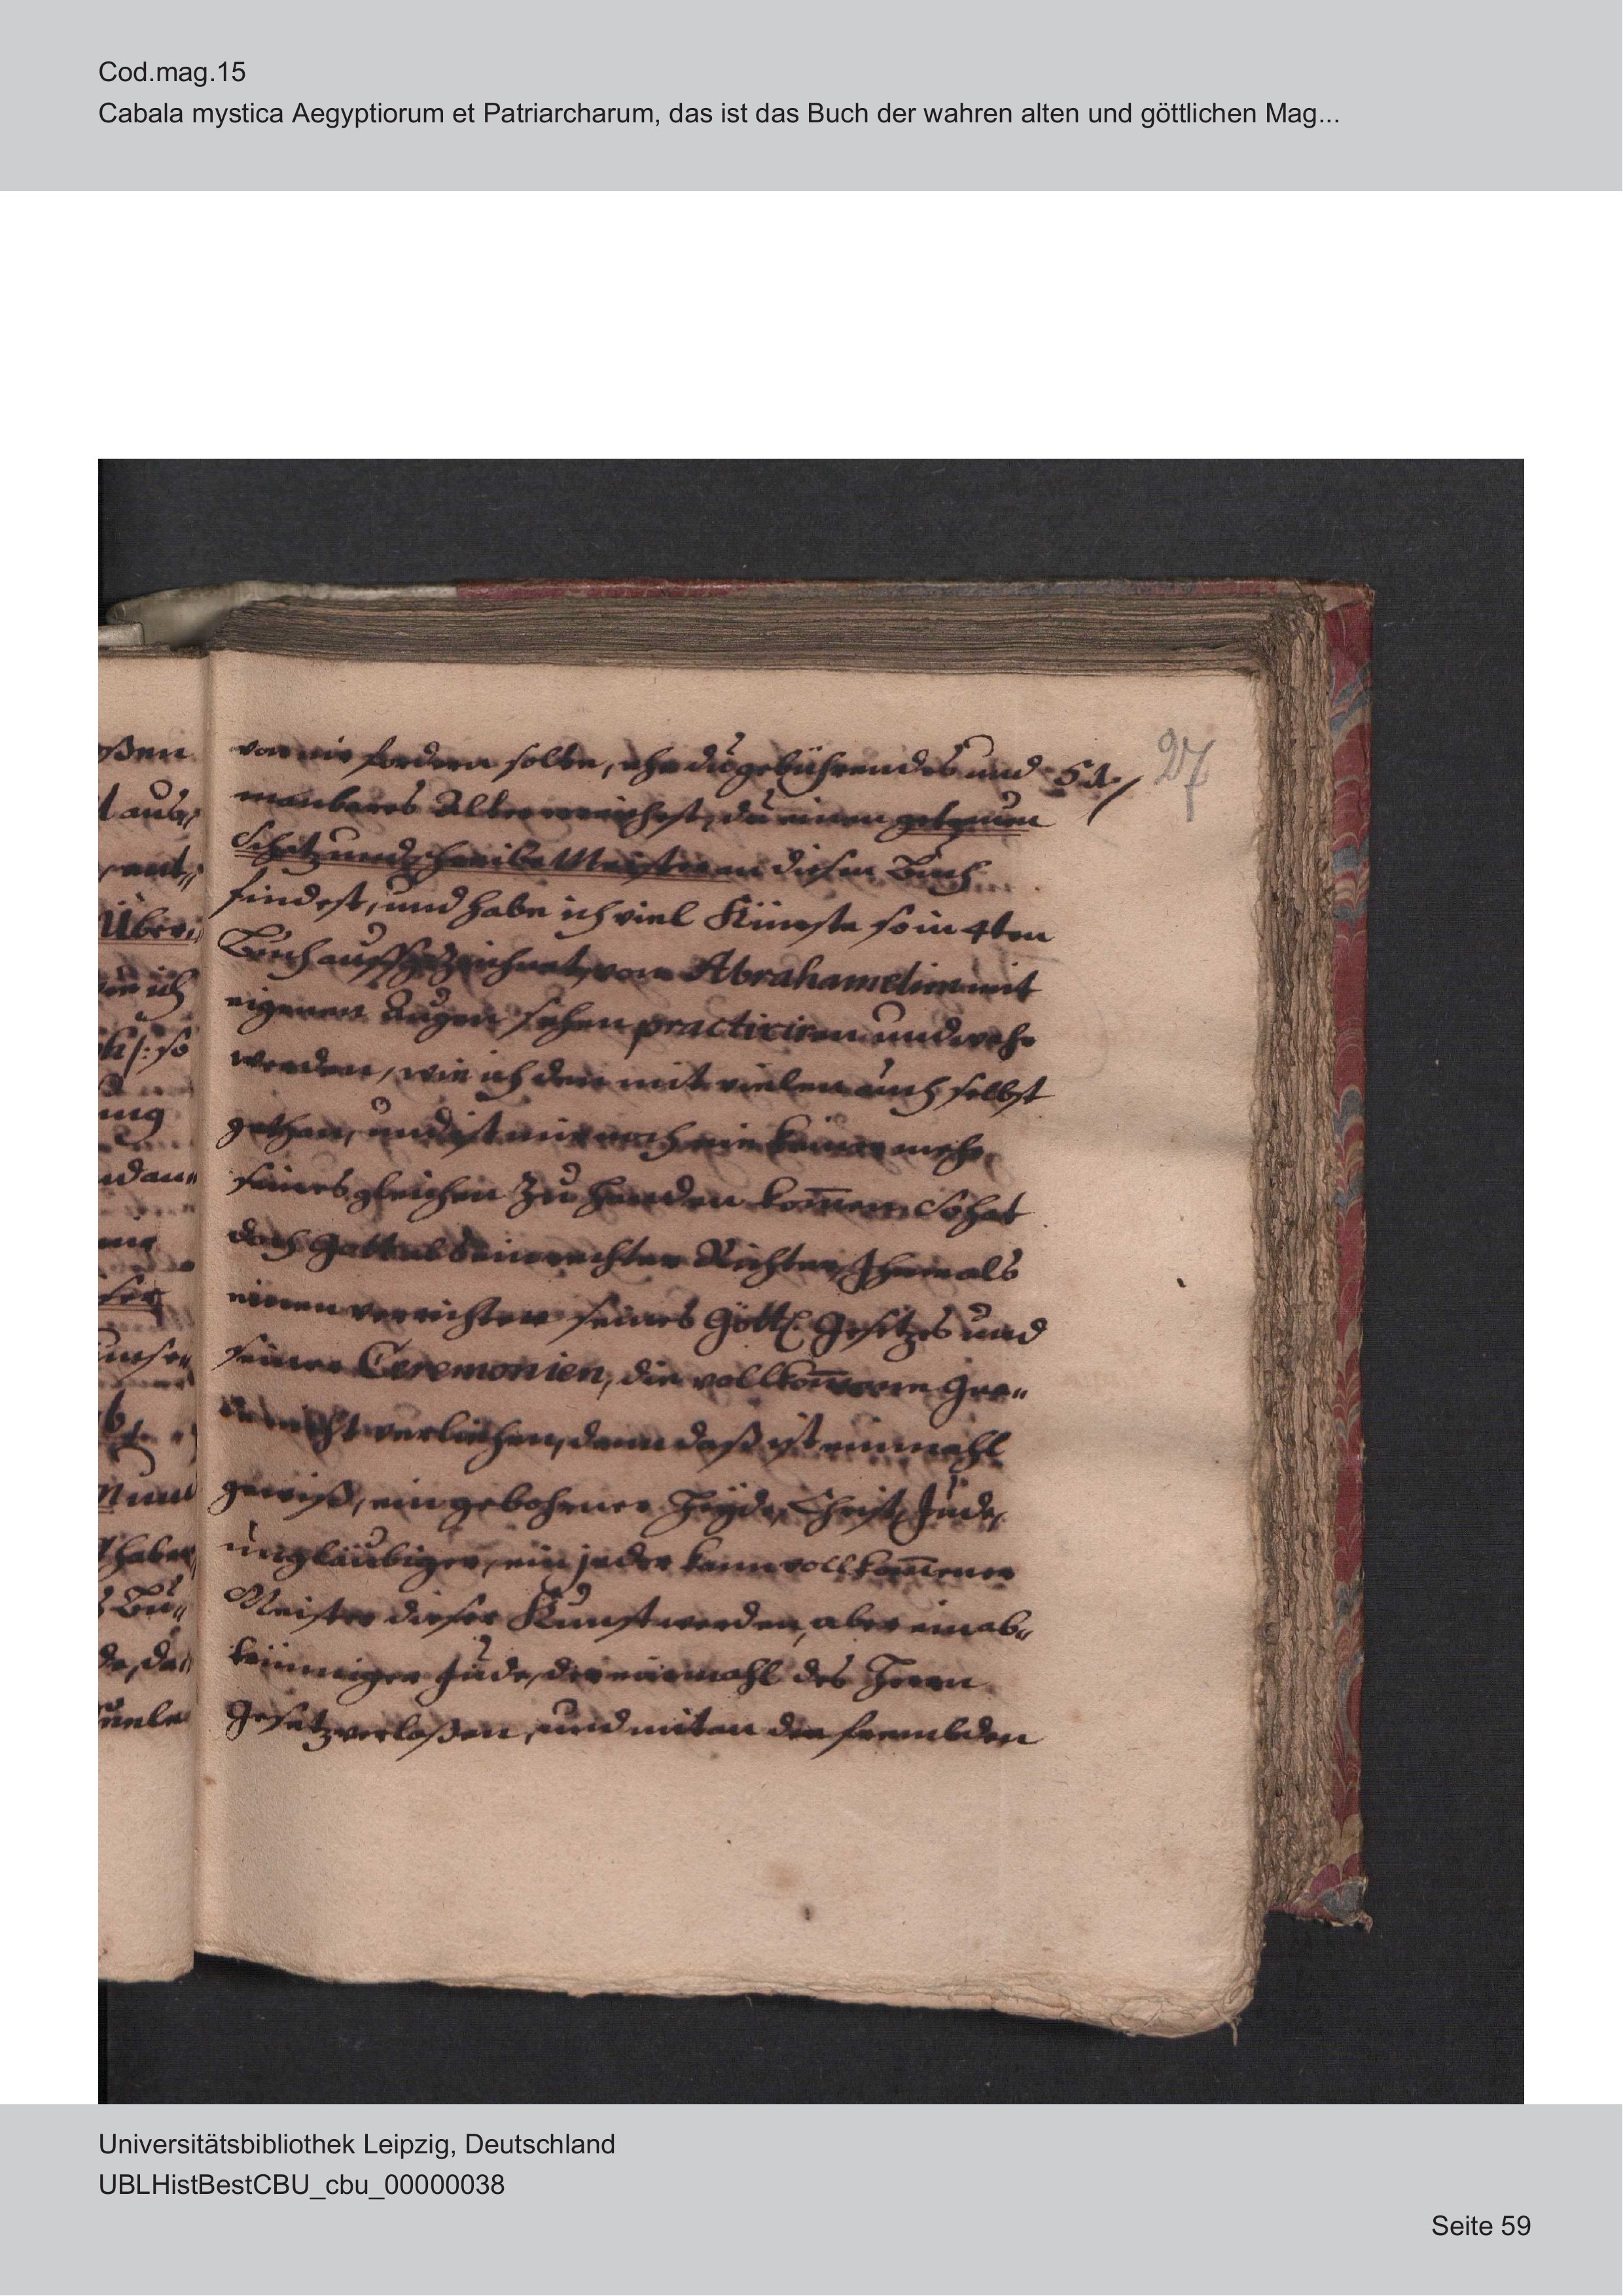 Cod.mag.15
Cabala mystica Aegyptiorum et Patriarcharum, das ist das Buch der wahren alten und göttlichen Mag...
27
von mir fordern solte, ehe du gebührendes und
manbares Alter erreichest, du einen getreuen
Schatz und Meister an diesem Buch
findest, und habe ich viel Künste so in 4ten
Buch auffgezeichnet, vom Abrahamelim mit
eigenen Augen sehen practiciren und wahr
werden, wie ich den mit vielen auch selbst
gethan, und ist mir noch nie keiner mehr
seines gleichen zu Handen kom̄en. So hat
doch Gott als ein rechter Richter, Ihme als
einen verrichter seines Göttl. Gesetzes und
seiner Ceremonien, die vollkom̄ene Gna„
de nicht verliehen, denn daß ist einmahl
gewiß, ein gebohrner Heyde, Christ, Jude,
ungläubiger, ein jeder kann vollkom̄ener
Meister dieser Kunst werden, aber ein ab„
trünniger Jude, der einmahl des Herrn
Gesetz verlaßen, und mit an die frembden
Universitätsbibliothek Leipzig, Deutschland
UBLHistBestCBU_cbu_00000038
Seite 59